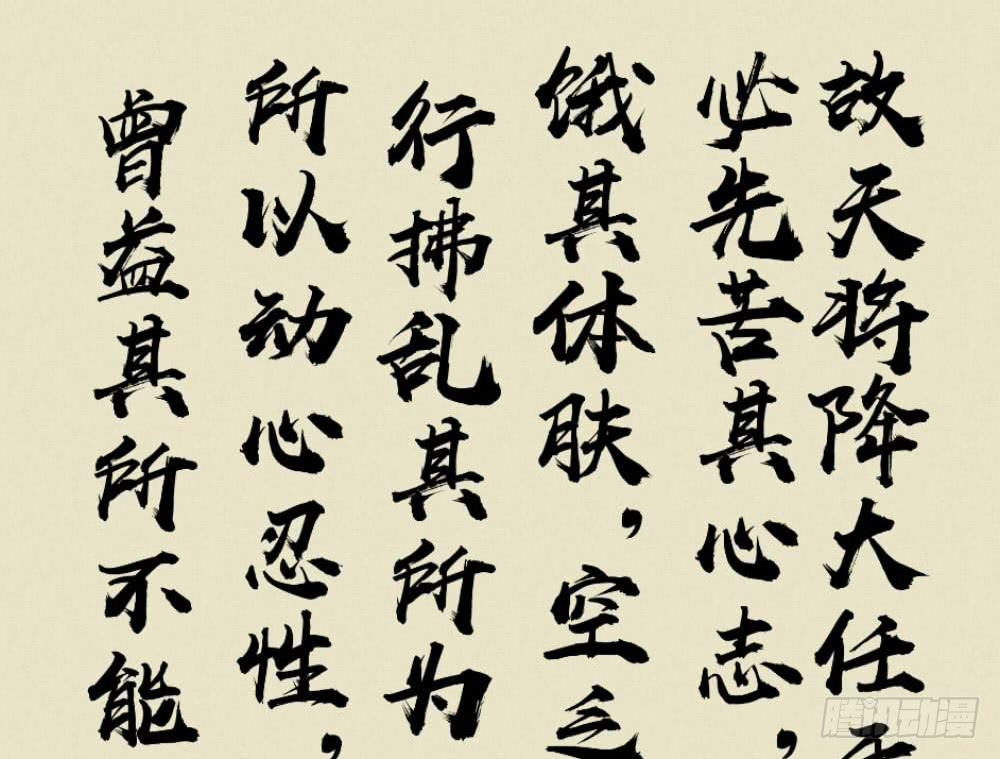 故天将降大任于
必先苦其心志，
饿其体肤，空乏
行拂乱其所为
所以动心忍性，
曾益其所不能
腾讯动漫